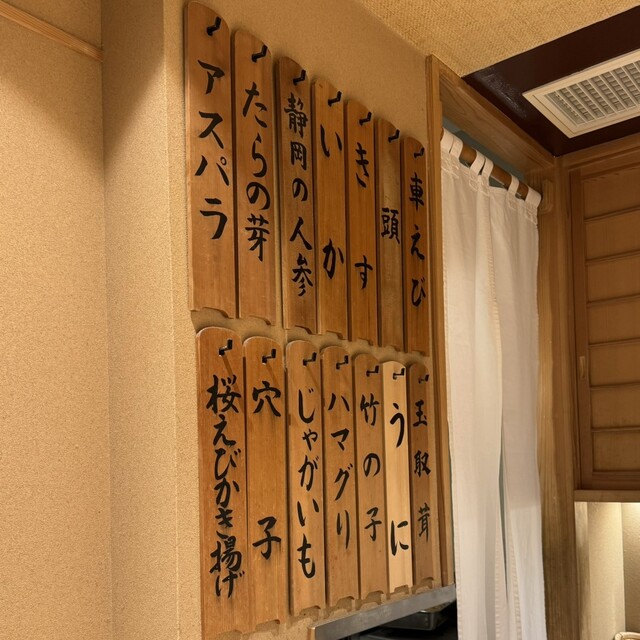 車えび
頭
きす
いか
静岡の人参
たらの芽
アスパラ
玉取茸
うに
竹の子
ハマグリ
じゃがいも
穴子
桜えびかき揚げ